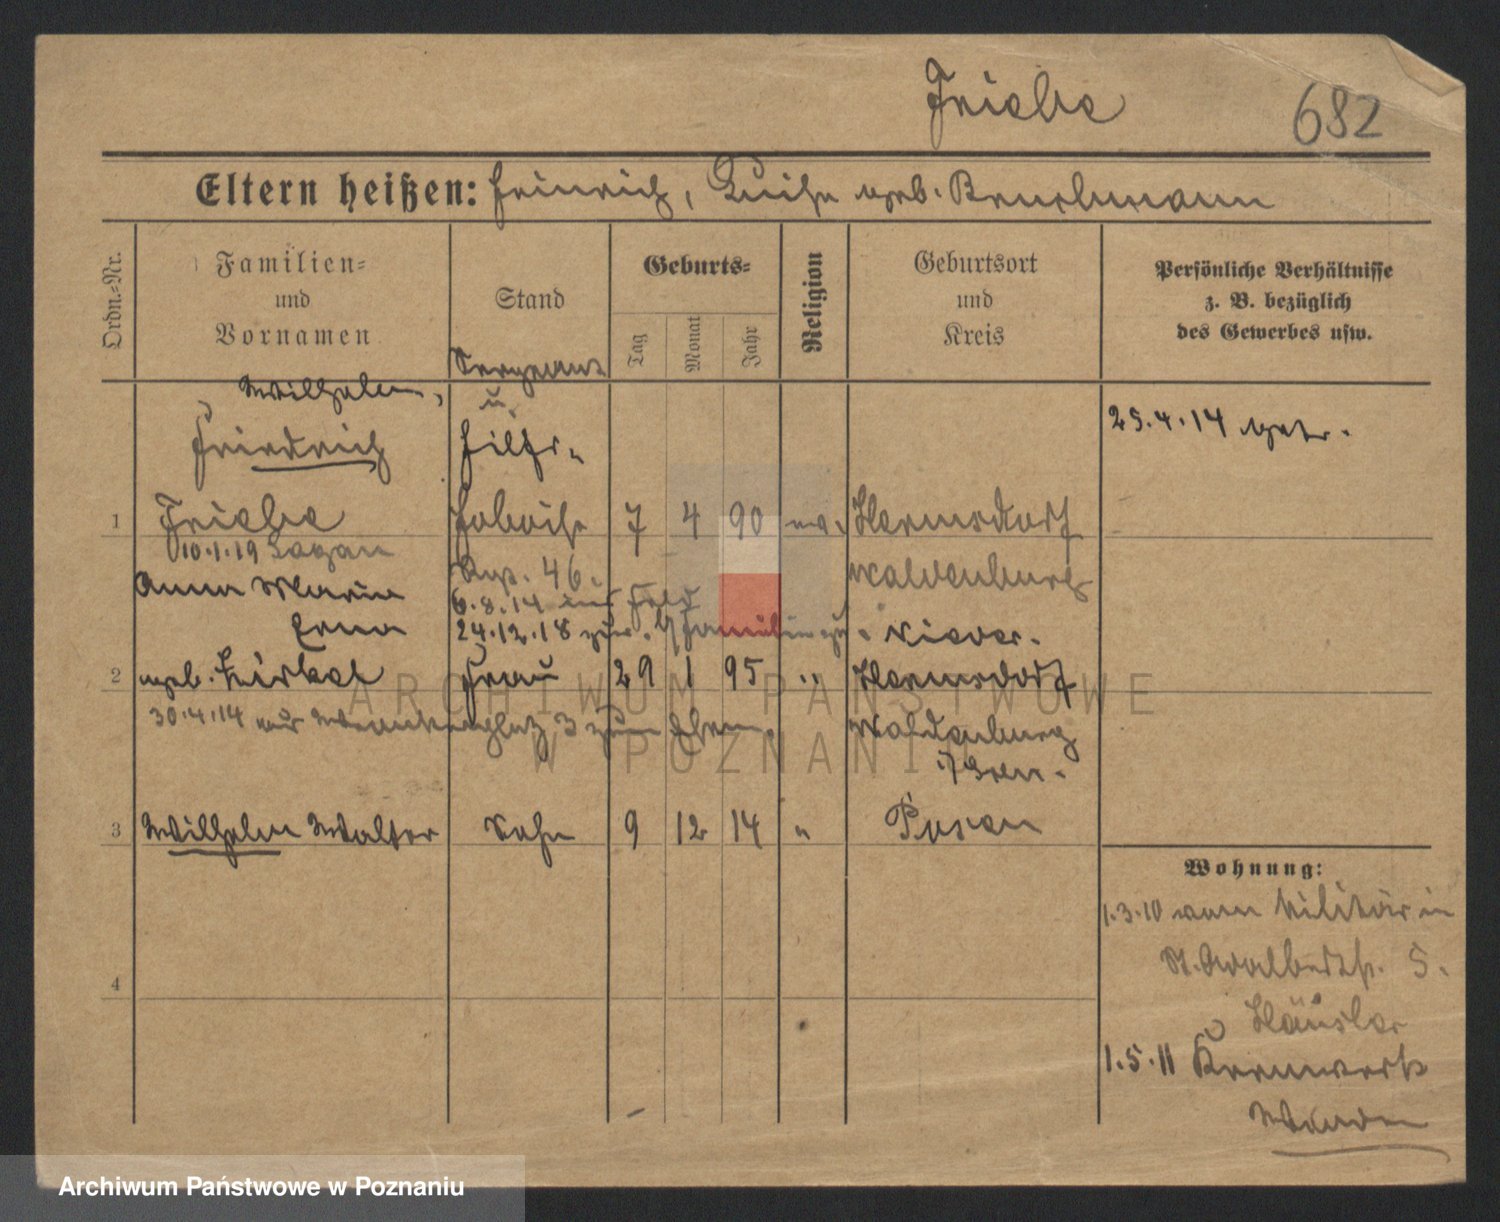 Friebe 682
Eltern heißen: Heinrich, Luise geb. Beuchmann
Ordn.-Nr.
Familien- und Vornamen
Stand
Geburts-
Tag
Monat
Jahr
Religion
Geburtsort und Kreis
Persönliche Verhältnisse z. B. bezüglich des Gewerbes usw.
Wilhelm, Sergeant
Friedrich u. Hilfs-
25.4.14 getr.
1 Friebe Hoboist 7 4 90 ev. Hermsdorf
10.1.19 Sagan Rgt. 46. Waldenburg
Anna Maria 6.8.14 ins Feld
Erna 24.12.18 zur. Familie
2 geb. Zirkel Frau 29 1 95 " Hermsdorf
30.4.14 zum Ehem. Waldenburg
3 Wilhelm Walter Sohn 9 12 14 " Posen
Wohnung:
1.3.10 vom Militär in
St. Adalbertstr. 5.
Häusler
4
1.5.11 Kernwerk
ARCHIWUM PAŃSTWOWE
W POZNANIU
Archiwum Państwowe w Poznaniu